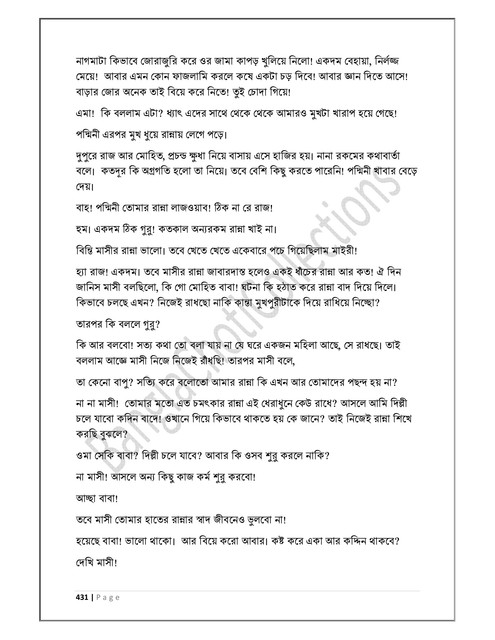 নাগমাটা কিভাবে জোরাজুরি করে ওর জামা কাপড় খুলিয়ে নিলো! একদম বেহায়া, নির্লজ্জ
মেয়ে! আবার এমন কোন ফাজলামি করলে কষে একটা চড় দিবে! আবার জ্ঞান দিতে আসে!
বাড়ার জোর অনেক তাই বিয়ে করে নিতে! তুই চোদা গিয়ে!
এমা! কি বললাম এটা? ধ্যাৎ এদের সাথে থেকে থেকে আমারও মুখটা খারাপ হয়ে গেছে!
পদ্মিনী এরপর মুখ ধুয়ে রান্নায় লেগে পড়ে।
দুপুরে রাজ আর মোহিত, প্রচন্ড ক্ষুধা নিয়ে বাসায় এসে হাজির হয়। নানা রকমের কথাবার্তা
বলে। কতদূর কি অগ্রগতি হলো তা নিয়ে। তবে বেশি কিছু করতে পারেনি! পদ্মিনী খাবার বেড়ে
দেয়।
বাহ! পদ্মিনী তোমার রান্না লাজওয়াব! ঠিক না রে রাজ!
হুম। একদম ঠিক গুরু! কতকাল অন্যরকম রান্না খাই না।
বিন্তি মাসীর রান্না ভালো। তবে খেতে খেতে একেবারে পচে গিয়েছিলাম মাইরী!
হ্যা রাজ! একদম। তবে মাসীর রান্না জাবারদাস্ত হলেও একই ধাঁচের রান্না আর কত! ঐ দিন
জানিস মাসী বলছিলো, কি গো মোহিত বাবা! ঘটনা কি হঠাত করে রান্না বাদ দিয়ে দিলে।
কিভাবে চলছে এখন? নিজেই রাধছো নাকি কান্তা মুখপুরীটাকে দিয়ে রাধিয়ে নিচ্ছো?
তারপর কি বললে গুরু?
কি আর বলবো! সত্য কথা তো বলা যায় না যে ঘরে একজন মহিলা আছে, সে রাধছে। তাই
বললাম আজ্ঞে মাসী নিজে নিজেই রাঁধছি! তারপর মাসী বলে,
তা কেনো বাপু? সত্যি করে বলোতো আমার রান্না কি এখন আর তোমাদের পছন্দ হয় না?
না না মাসী! তোমার মতো এত চমৎকার রান্না এই ধেরাধুনে কেউ রাধে? আসলে আমি দিল্লী
চলে যাবো কদিন বাদে! ওখানে গিয়ে কিভাবে থাকতে হয় কে জানে? তাই নিজেই রান্না শিখে
করছি বুঝলে?
ওমা সেকি বাবা? দিল্লী চলে যাবে? আবার কি ওসব শুরু করলে নাকি?
না মাসী! আসলে অন্য কিছু কাজ কর্ম শুরু করবো!
আচ্ছা বাবা!
তবে মাসী তোমার হাতের রান্নার স্বাদ জীবনেও ভুলবো না!
হয়েছে বাবা! ভালো থাকো। আর বিয়ে করো আবার। কষ্ট করে একা আর কদ্দিন থাকবে?
দেখি মাসী!
431 | P a g e
BanglaChotiCollections